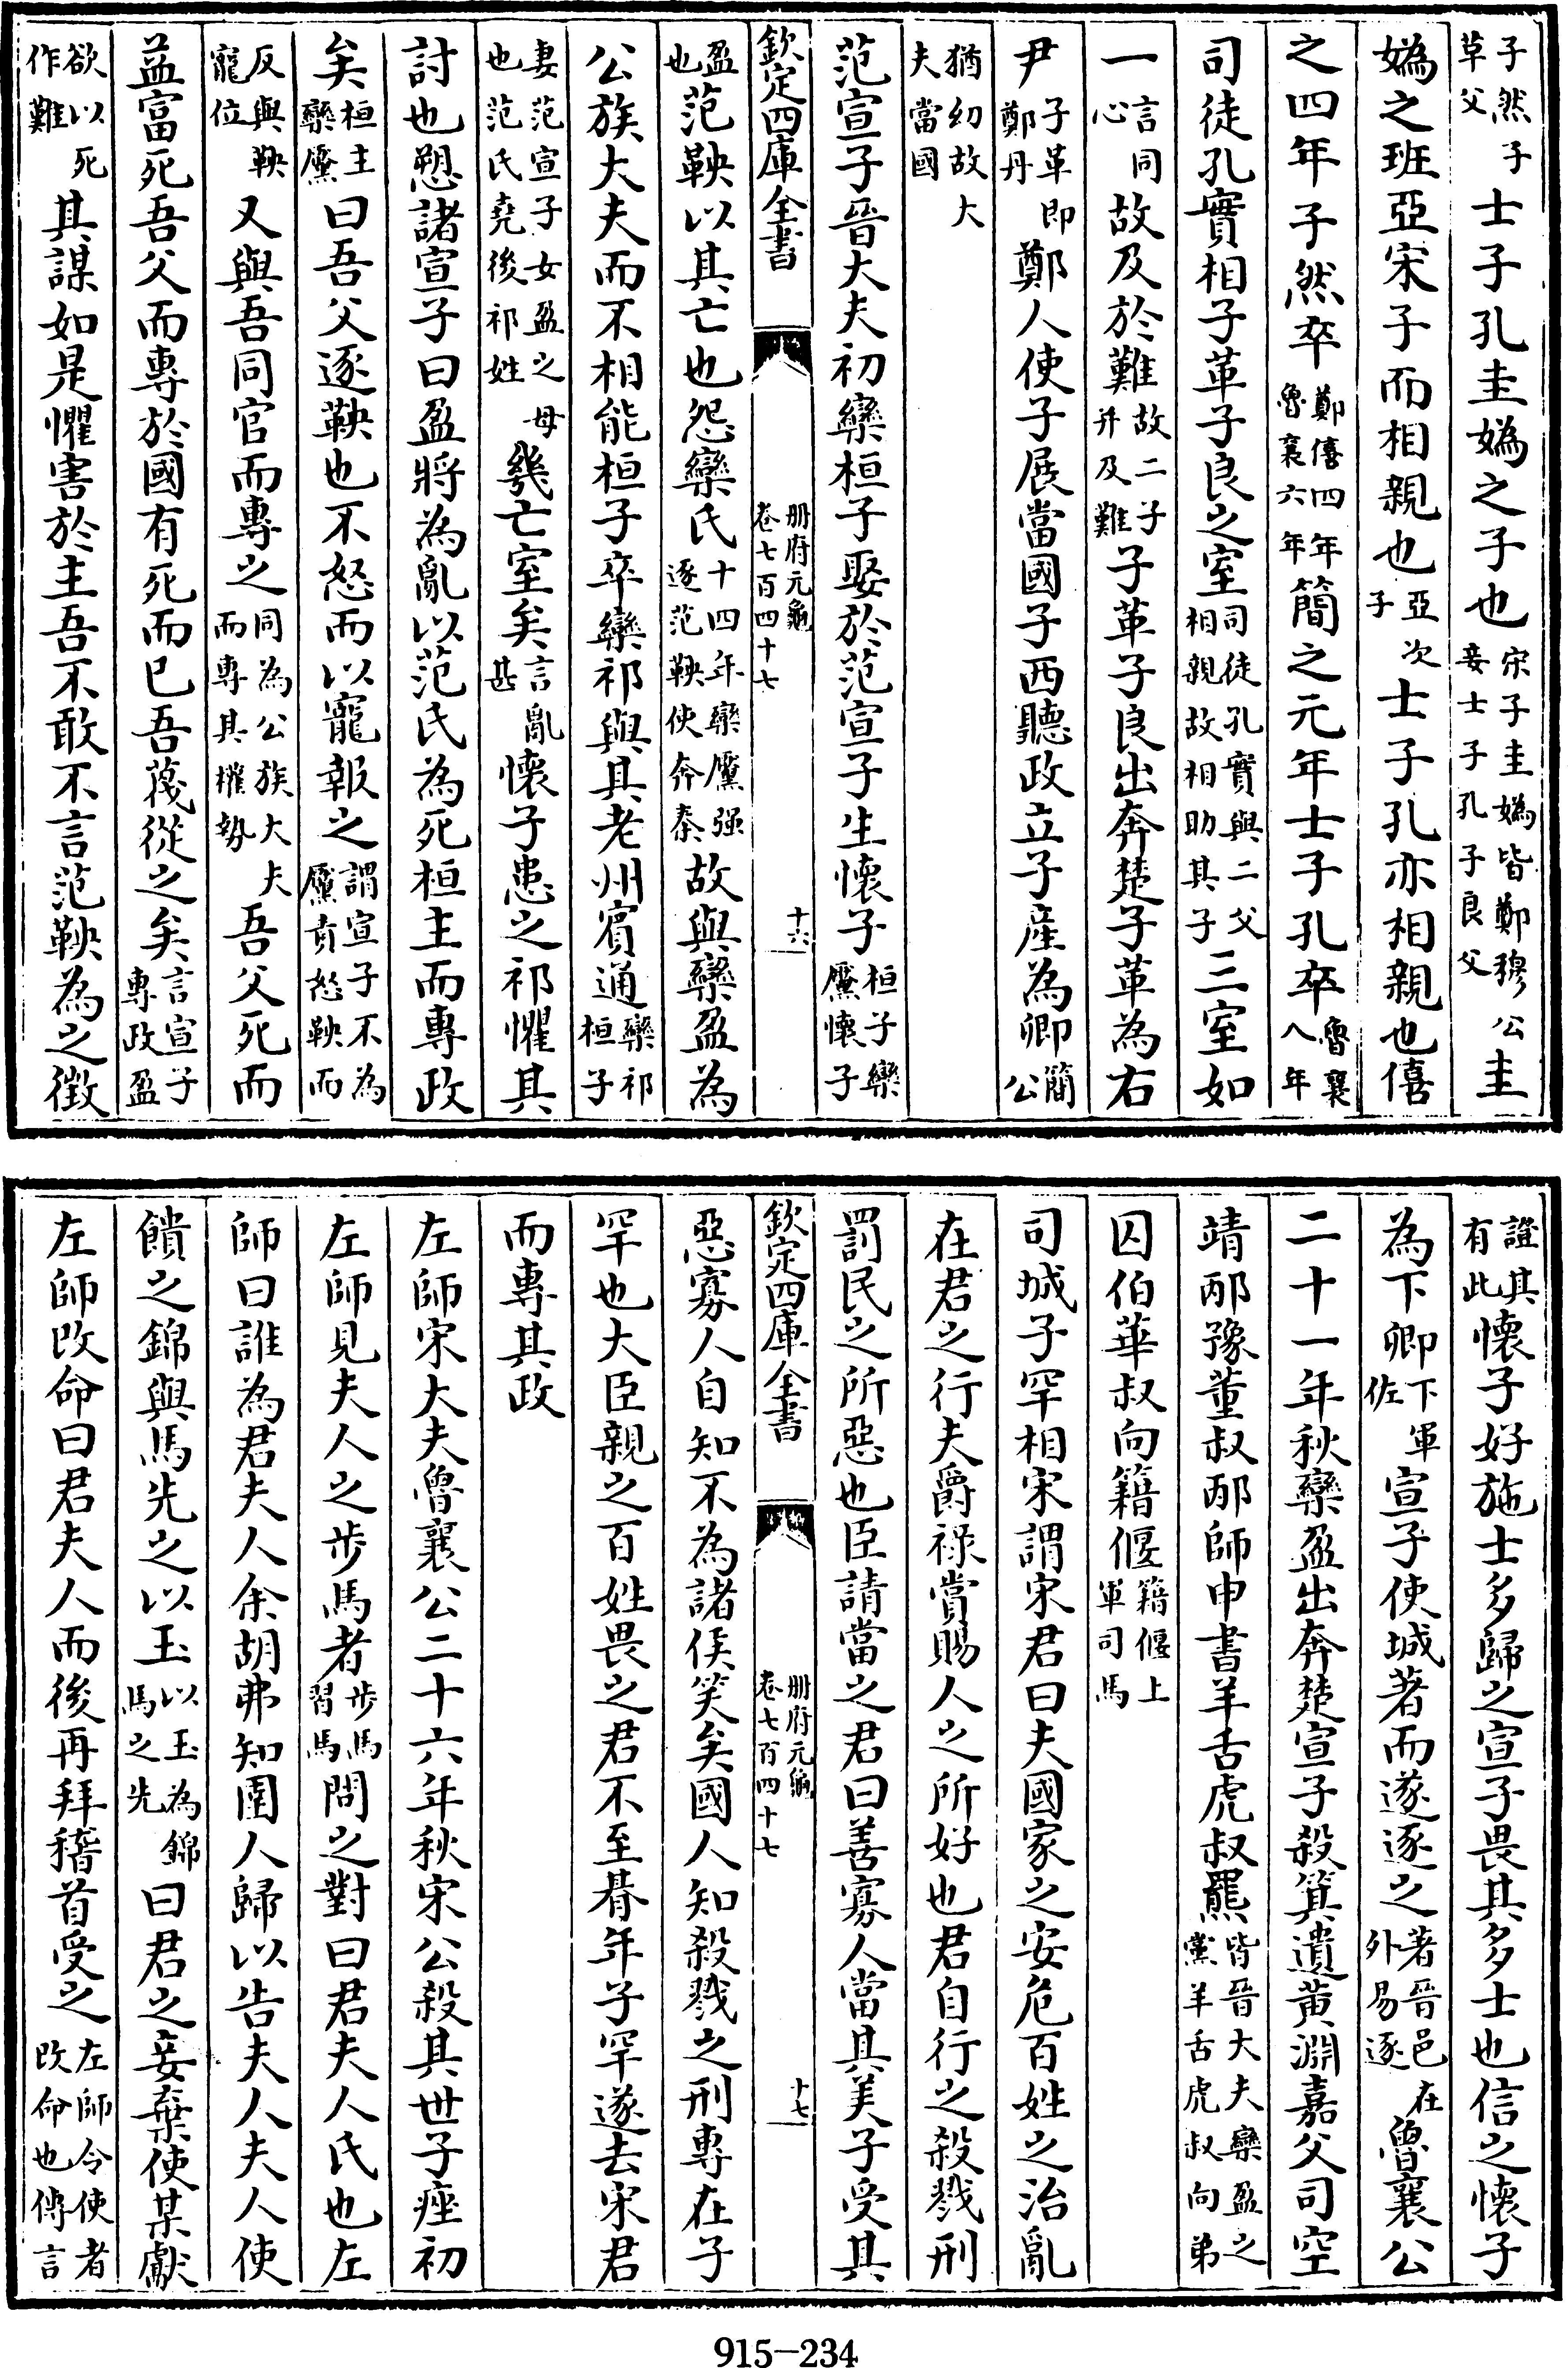 子然子草父士子孔圭媯之子也宋子圭媯皆鄭穆公妾士子孔子良父圭
媯之班亞宋子而相親也亞次子士子孔亦相親也僖
之四年子然卒鄭僖四年魯襄六年簡之元年士子孔卒魯襄八年
司徒孔實相子革子良之室司徒孔實與二父相親故相助其子三室如
一言同心故及於難故二子并及難子革子良出奔楚子革為右
尹子革即鄭丹鄭人使子展當國子西聽政立子産為卿簡公
猶幼故大夫當國
范宣子晉大夫初欒桓子娶於范宣子生懷子桓子欒黶懷子
欽定四庫全書 册府元龜卷七百四十七 十六
盈也范鞅以其亡也怨欒氏十四年欒黶强逐范鞅使奔秦故與欒盈為
公族大夫而不相能桓子卒欒祁與其老州賓通欒祁桓子
妻范宣子女盈之母也范氏堯後祁姓幾亡室矣言亂甚懷子患之祁懼其
討也愬諸宣子曰盈將為亂以范氏為死桓主而專政
矣桓主欒黶曰吾父逐鞅也不怒而以寵報之謂宣子不為黶責怒鞅而
反與鞅寵位又與吾同官而專之同為公族大夫而專其權勢吾父死而
益富死吾父而專於國有死而已吾蔑從之矣言宣子專政盈
欲以死作難其謀如是懼害於主吾不敢不言范鞅為之徵
證其有此懷子好施士多歸之宣子畏其多士也信之懷子
為下卿下軍佐宣子使城著而遂逐之著晉邑在外易逐魯襄公
二十一年秋欒盈出奔楚宣子殺箕遺黄淵嘉父司空
靖邴豫董叔邴師申書羊舌虎叔羆皆晉大夫欒盈之黨羊舌虎叔向弟
囚伯華叔向籍偃籍偃上軍司馬
司城子罕相宋謂宋君曰夫國家之安危百姓之治亂
在君之行夫爵祿賞賜人之所好也君自行之殺戮刑
罰民之所惡也臣請當之君曰善寡人當其美子受其
欽定四庫全書 册府元龜卷七百四十七 十七
惡寡人自知不為諸侯笑矣國人知殺戮之刑專在子
罕也大臣親之百姓畏之君不至朞年子罕遂去宋君
而專其政
左師宋大夫魯襄公二十六年秋宋公殺其世子痤初
左師見夫人之步馬者步馬習馬問之對曰君夫人氏也左
師曰誰為君夫人余胡弗知圉人歸以告夫人夫人使
饋之錦與馬先之以玉以玉為錦馬之先曰君之妾棄使某獻
左師改命曰君夫人而後再拜稽首受之左師令使者改命也傳言
915-234